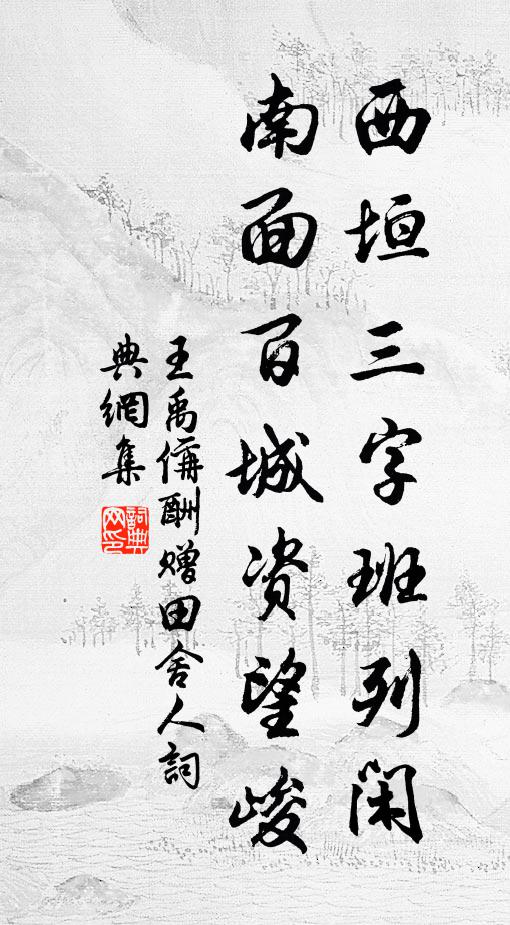 西垣三字班列闲
南面百城资望峻
王禹偁酬赠田舍人詞
典網集
詞典
网印